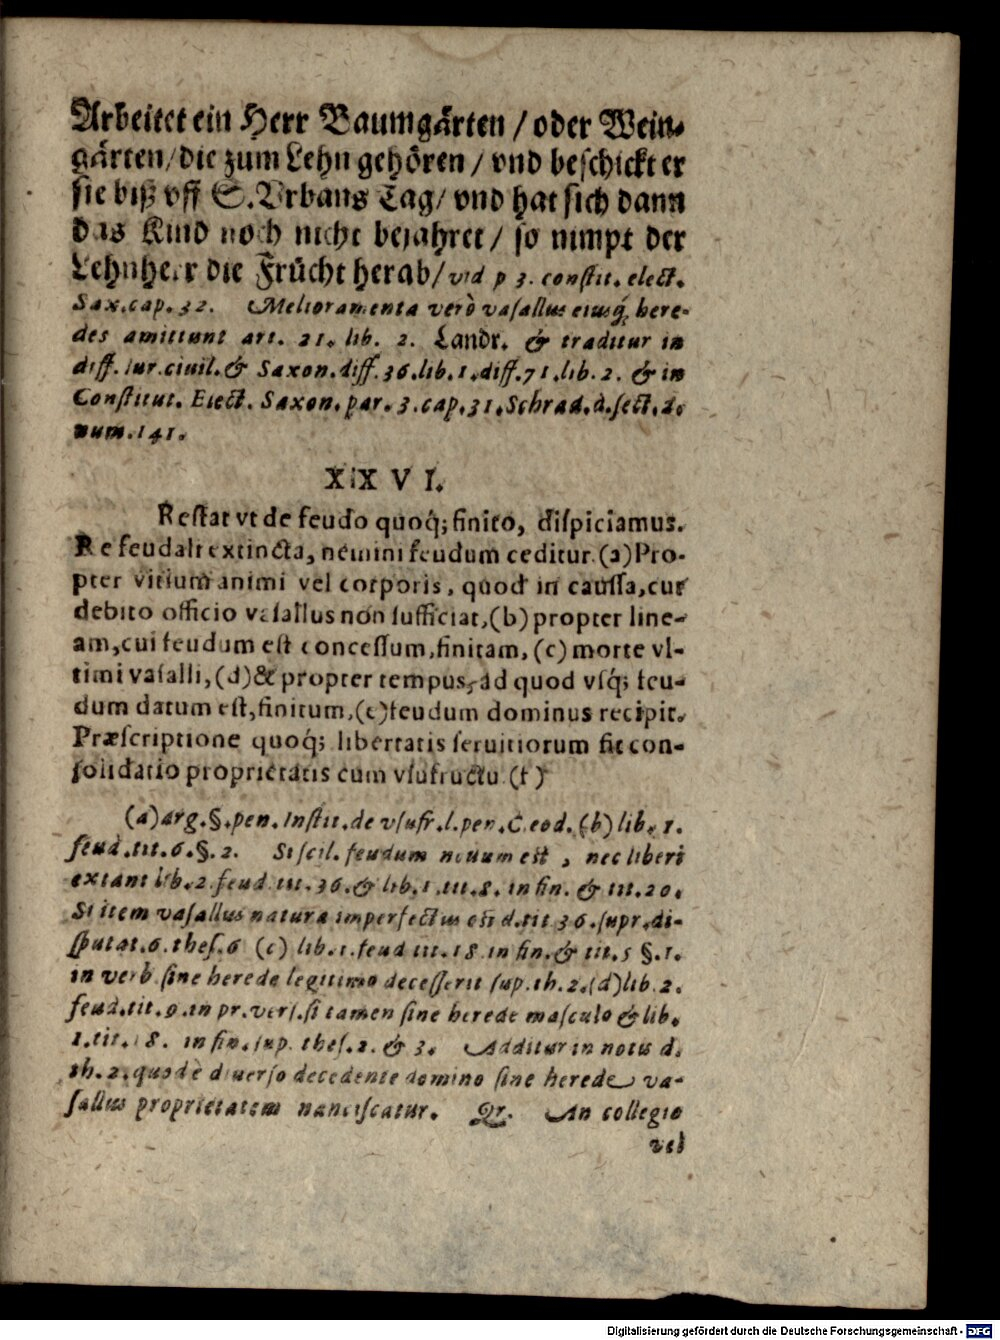 Arbeitet ein Herr Baumgärten / oder Wein-
gärten/die zum Lehn gehören / vnd beschickt er
sie biß vff S.Vrbans Tag/ vnd hat sich dann
das Kind noch nicht bejahret / so nimpt der
Lehnherr die Frücht herab/ vid p 3. constit. elect.
Sax.cap. 32. Melioramenta verò vasallus eiusq́; here-
des amittunt art. 21. lib. 2. Landr. & traditur in
diff. iur.ciuil.& Saxon.diff.36.lib.1.diff.71.lib.2. & in
Constitut. Elect. Saxon. par. 3.cap.31.Schrad.d.sect.d.
num.141.
XXVI.
Restat vt de feudo quoq́; finito, dispiciamus.
Re feudali extincta, nemini feudum ceditur.(a)Pro-
pter vitium animi vel corporis, quod in caussa,cur
debito officio vasallus non sufficiat,(b) propter line-
am,cui feudum est concessum,finitam, (c) morte vl-
timi vasalli, (d)& propter tempus, ad quod vsq́; feu-
dum datum est,finitum,(e)feudum dominus recipit.
Præscriptione quoq́; libertatis seruitiorum fit con-
solidatio proprietatis cum vsufructu (f)
(a)arg.§.pen.Instit.de vsufr.l.pen.C.eod.(b) lib. 1.
feud.tit.6.§.2. Si scil. feudum nouum est , nec liberi
extant lib.2.feud tit.36.& lib.1.tit.8. in fin. & tit.20.
Si item vasallus natura imperfectus est d.tit 36.supr.di-
sputat.6.thes.6 (c) lib.1.feud tit.18 in fin.& tit.5 §.1.
in verb.sine herede legitimo decesserit sup.th.2.(d)lib.2.
feud.tit.9.in pr.vers.si tamen sine herede masculo & lib.
1.tit.18. in fin.sup. thes.2. & 3. Additur in notis d.
th.2.quod è diuerso decedente domino sine herede va-
sallus proprietatem nanciscatur. Qr. An collegio
vel
Digitalisierung gefördert durch die Deutsche Forschungsgemeinschaft - DFG